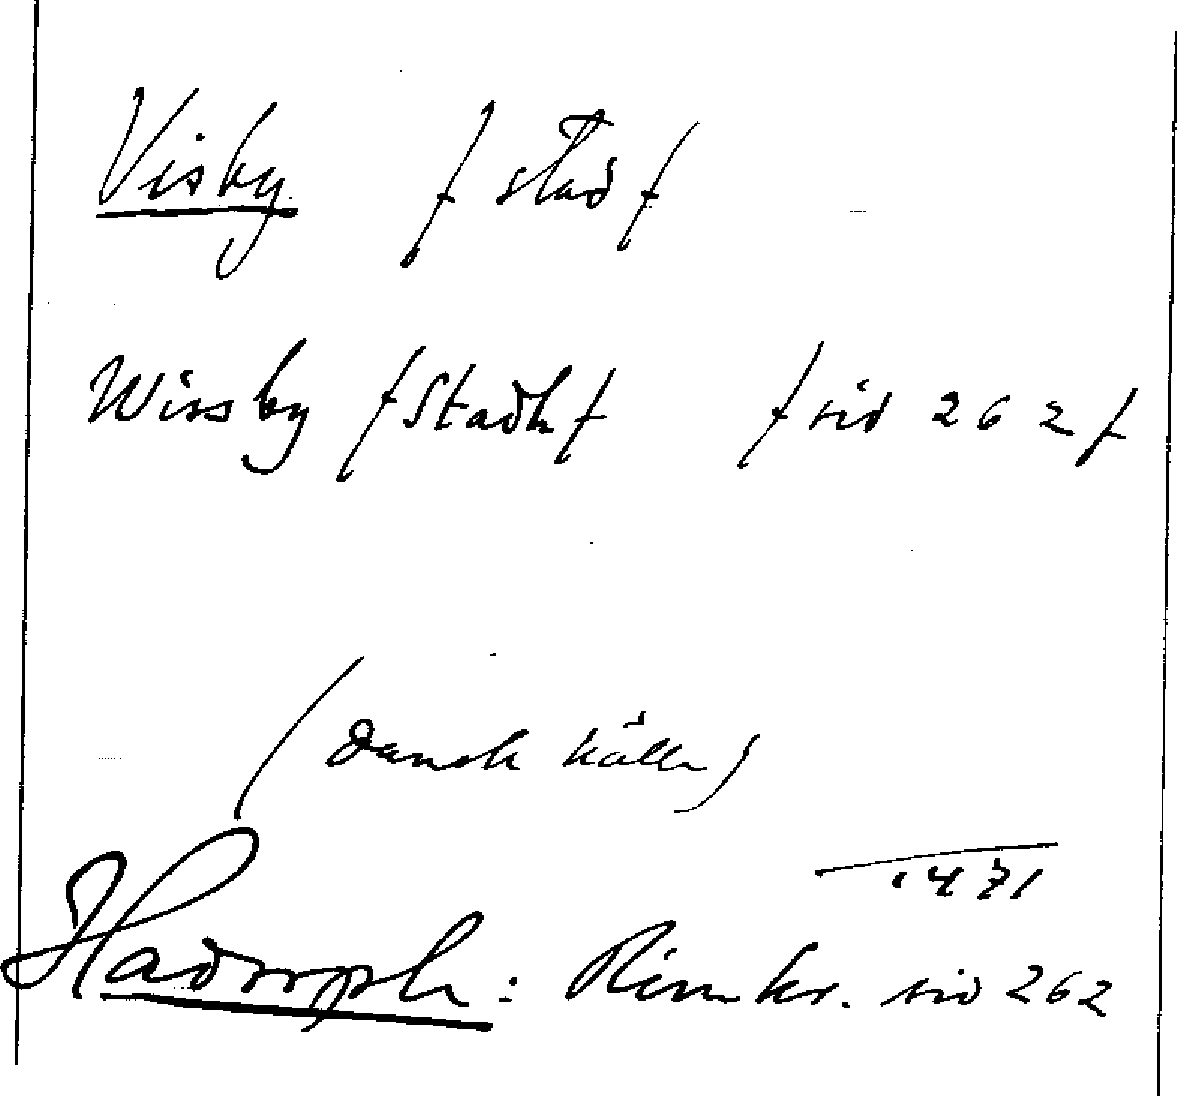 Visby / stad /
Wissby / Stadh / / sid 262 /
(dansk källa)
1471
Hadorph: Rimkr. sid 262